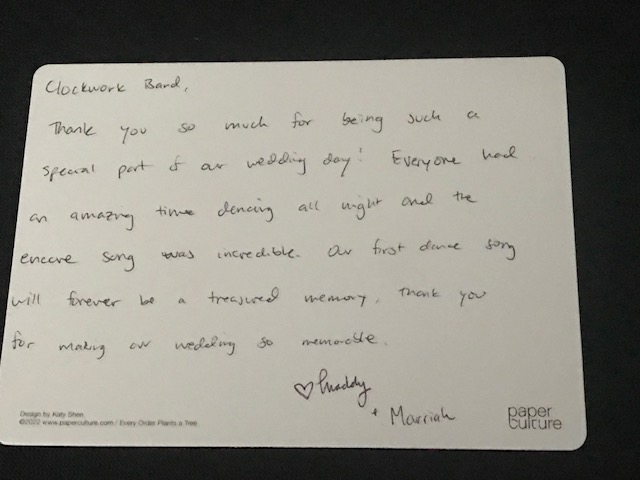 Clockwork Band,
Thank you so much for being such a
special part of our wedding day! Everyone had
an amazing time dancing all night and the
encore song was incredible. Our first dance song
will forever be a treasured memory. Thank you
for making our wedding so memorable.
♡ Maddy
+ Marriah
Design by Katy Shen
©2022 www.paperculture.com / Every Order Plants a Tree
paper
culture